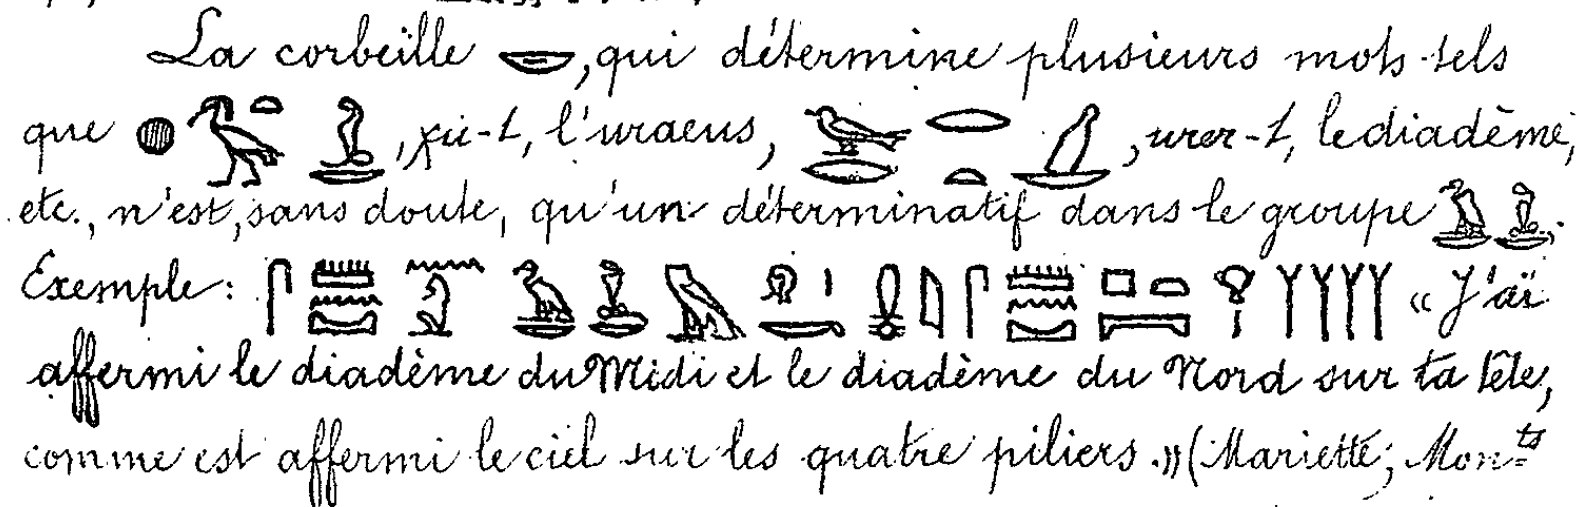 La corbeille 𓎟, qui détermine plusieurs mots tels
que 𓐍𓅜𓏏𓆗, χu-t, l'uraeus, 𓅨𓂋𓂋𓏏, urer-t, le diadème,
etc., n'est, sans doute, qu'un déterminatif dans le groupe 𓅒.
Exemple: 𓋴𓏠𓈖 𓈖 𓅒 𓅓 𓁶𓏤𓎡 𓎛𓇋 𓋴𓏠𓈖 𓊪𓏏𓇯 𓁷 𓊽𓊽𓊽𓊽 « J'ai
affermi le diadème du Midi et le diadème du Nord sur ta tête,
comme est affermi le ciel sur les quatre piliers.» (Mariette; Mon=ts